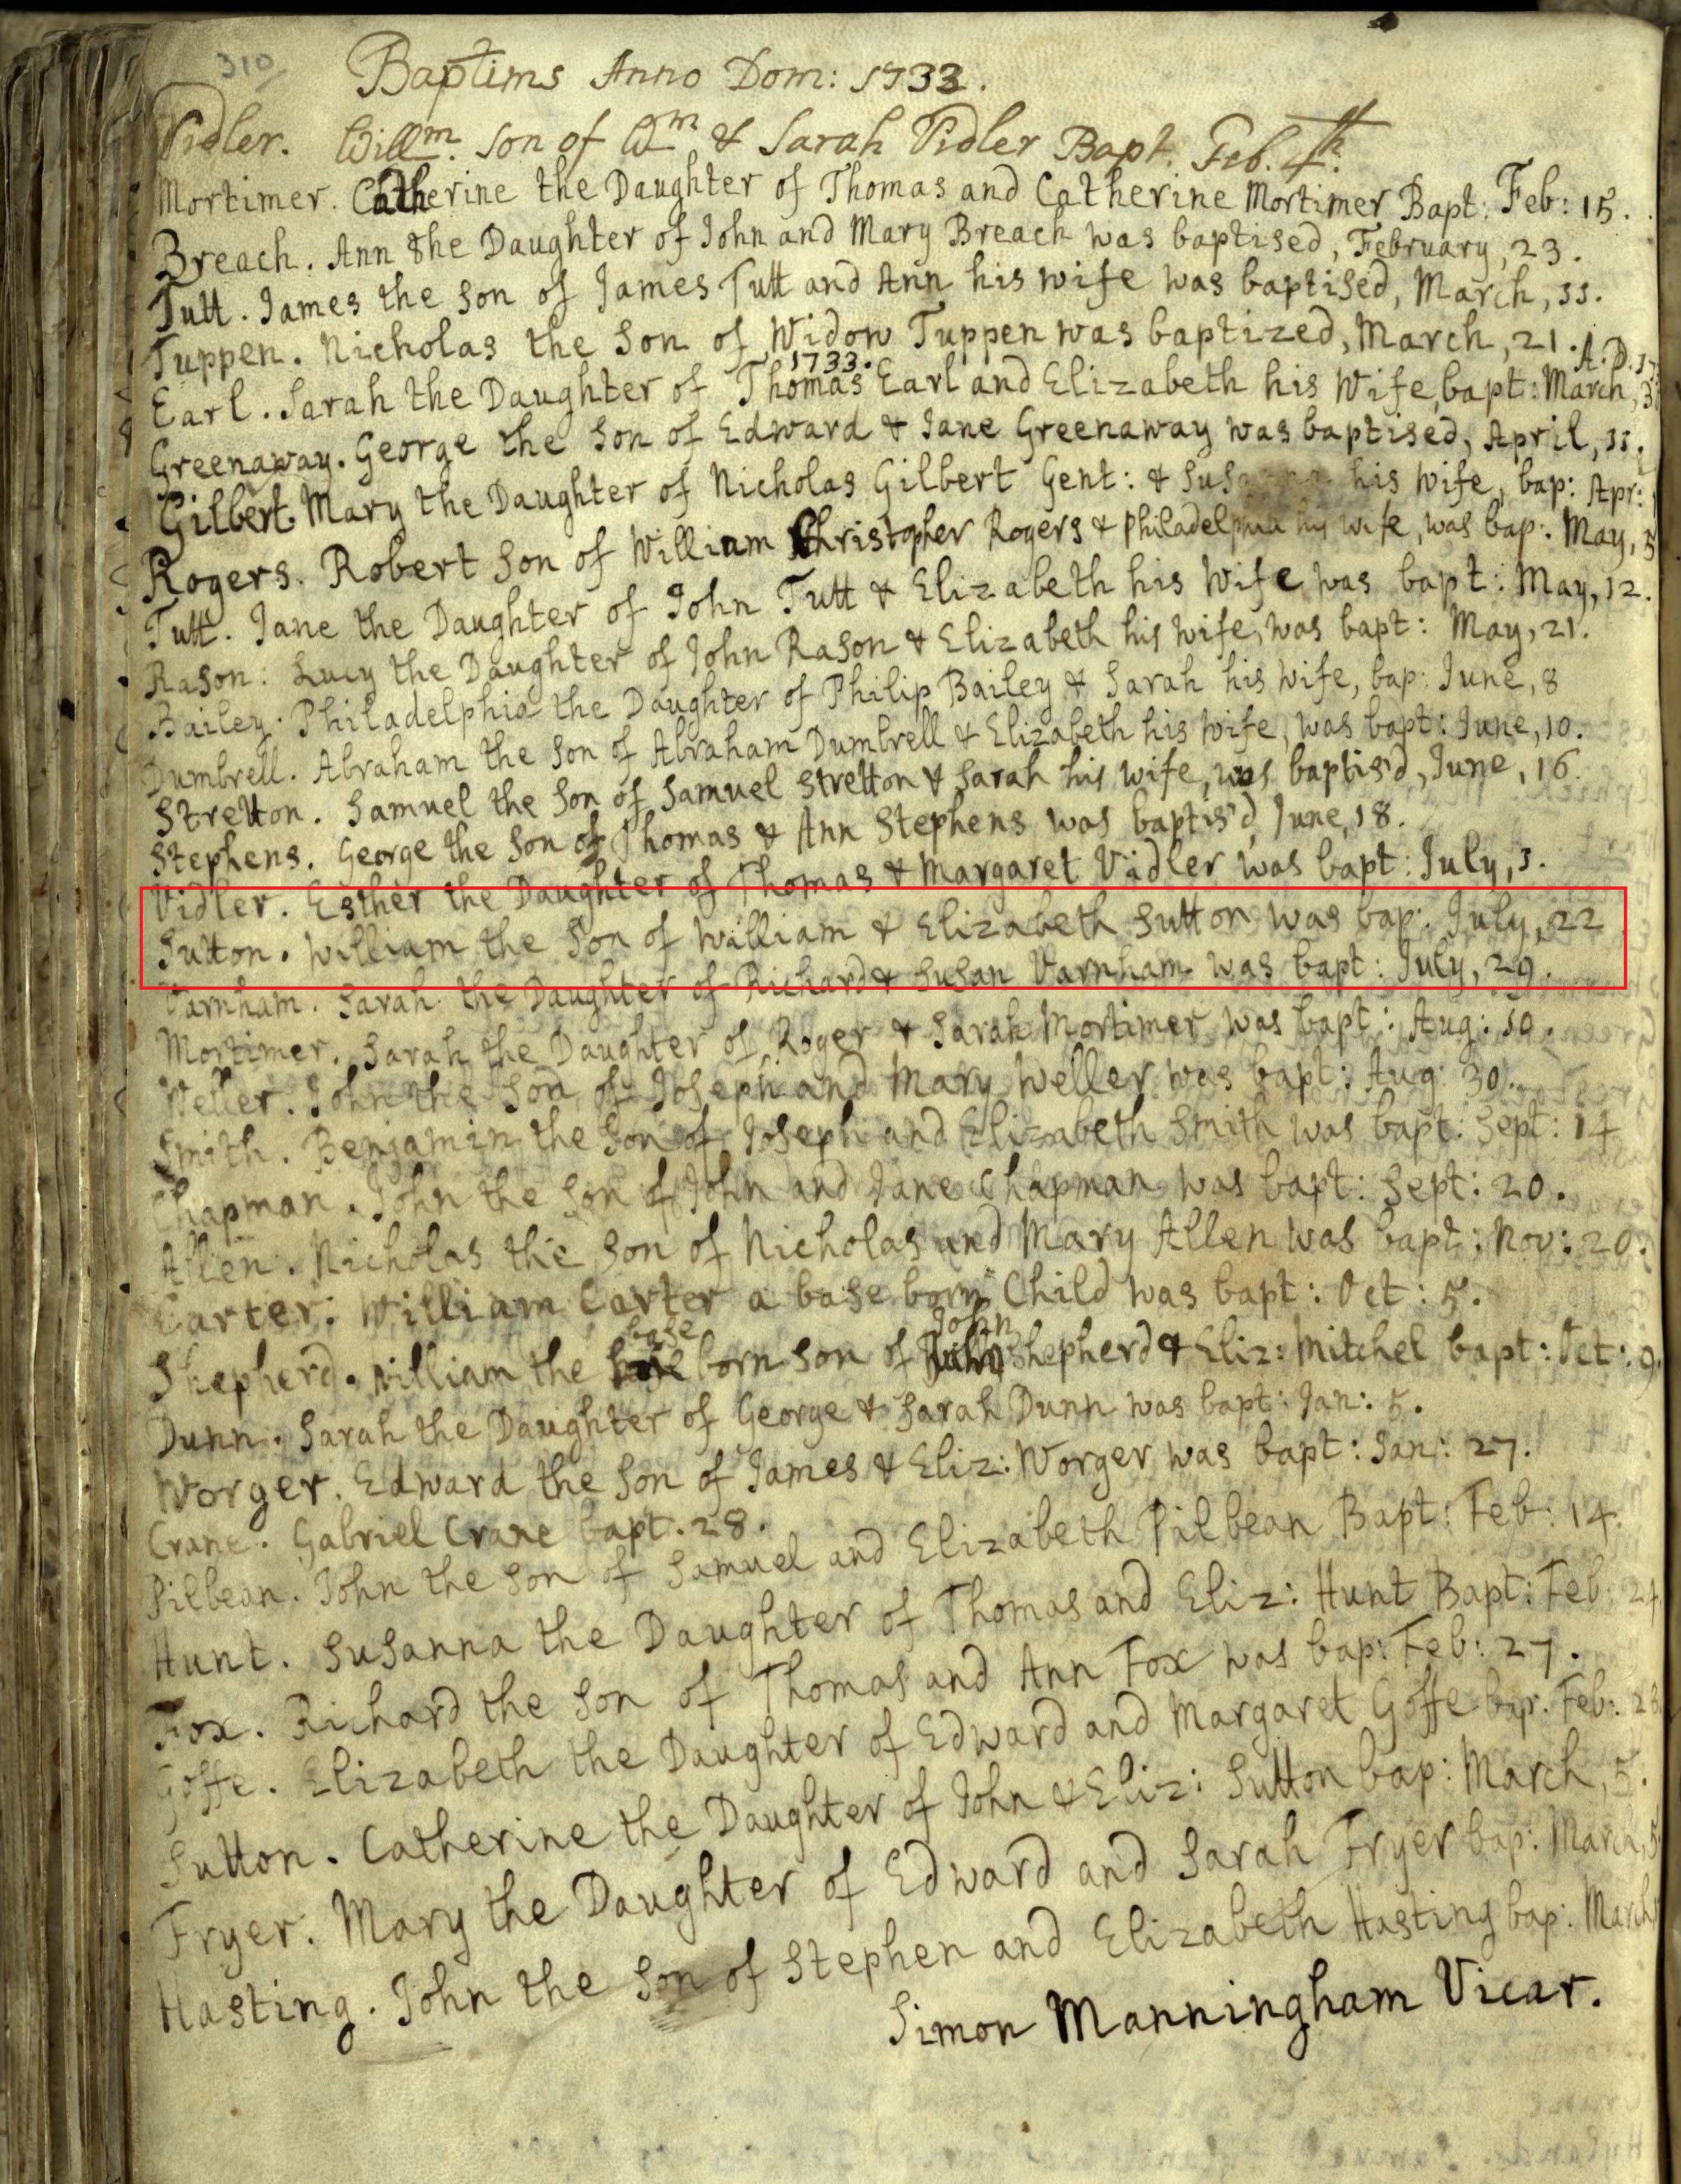 310
Baptims Anno Dom: 1733.
Vidler. Willm. Son of Wm & Sarah Vidler Bapt. Feb. 4th.
Mortimer. Catherine the Daughter of Thomas and Catherine Mortimer Bapt: Feb: 15.
Breach. Ann the Daughter of John and Mary Breach was baptised, February, 23.
Tutt. James the Son of James Tutt and Ann his wife was baptised, March, 11.
Tuppen. Nicholas the Son of Widow Tuppen was baptized, March, 21.
1733. A.D.
Earl. Sarah the Daughter of Thomas Earl and Elizabeth his Wife, bapt: March,
Greenaway. George the Son of Edward & Jane Greenaway was baptised, April, 11.
Gilbert. Mary the Daughter of Nicholas Gilbert Gent: & his wife, bap: Apr:
Rogers. Robert Son of William Christopher Rogers & Philadelphia his wife, was bap: May, 5
Tutt. Jane the Daughter of John Tutt & Elizabeth his Wife was bapt: May, 12.
Rason: Lucy the Daughter of John Rason & Elizabeth his wife, was bapt: May, 21.
Bailey. Philadelphia the Daughter of Philip Bailey & Sarah his wife, bap: June, 8
Dumbrell. Abraham the Son of Abraham Dumbrell & Elizabeth his wife, was bapt: June, 10.
Stretton. Samuel the Son of Samuel Stretton & Sarah his wife, was baptis'd, June, 16.
Stephens. George the Son of Thomas & Ann Stephens was baptis'd, June, 18.
Vidler. Esther the Daughter of Thomas & Margaret Vidler was bapt: July, 1.
Sutton. William the Son of William & Elizabeth Sutton was bap: July, 22
Varnham. Sarah the Daughter of Richard & Susan Varnham was bapt: July, 29.
Mortimer. Sarah the Daughter of Roger & Sarah Mortimer was bapt: Aug: 10.
Weller. John the Son of Joseph and Mary Weller was bapt: Aug: 30.
Smith. Benjamin the Son of Joseph and Elizabeth Smith was bapt: Sept: 14
Chapman. John the Son of John and Jane Chapman was bapt: Sept: 20.
Allen. Nicholas the Son of Nicholas and Mary Allen was bapt: Nov: 20.
Carter: William Carter a base born Child was bapt: Oct: 5.
base John
Shepherd. William the born son of Shepherd & Eliz: Mitchel bapt: Oct: 9.
Dunn. Sarah the Daughter of George & Sarah Dunn was bapt: Jan: 5.
Worger. Edward the Son of James & Eliz: Worger was bapt: Jan: 27.
Crane. Gabriel Crane bapt. 28.
Pilbean. John the Son of Samuel and Elizabeth Pilbean Bapt: Feb: 14.
Hunt. Susanna the Daughter of Thomas and Eliz: Hunt Bapt: Feb: 24.
Fox. Richard the Son of Thomas and Ann Fox was bap: Feb: 27.
Goffe. Elizabeth the Daughter of Edward and Margaret Goffe bap. Feb: 28
Sutton. Catherine the Daughter of John & Eliz: Sutton bap: March, 5.
Fryer. Mary the Daughter of Edward and Sarah Fryer bap: March, 5
Hasting. John the Son of Stephen and Elizabeth Hasting bap: March
Simon Manningham Vicar.